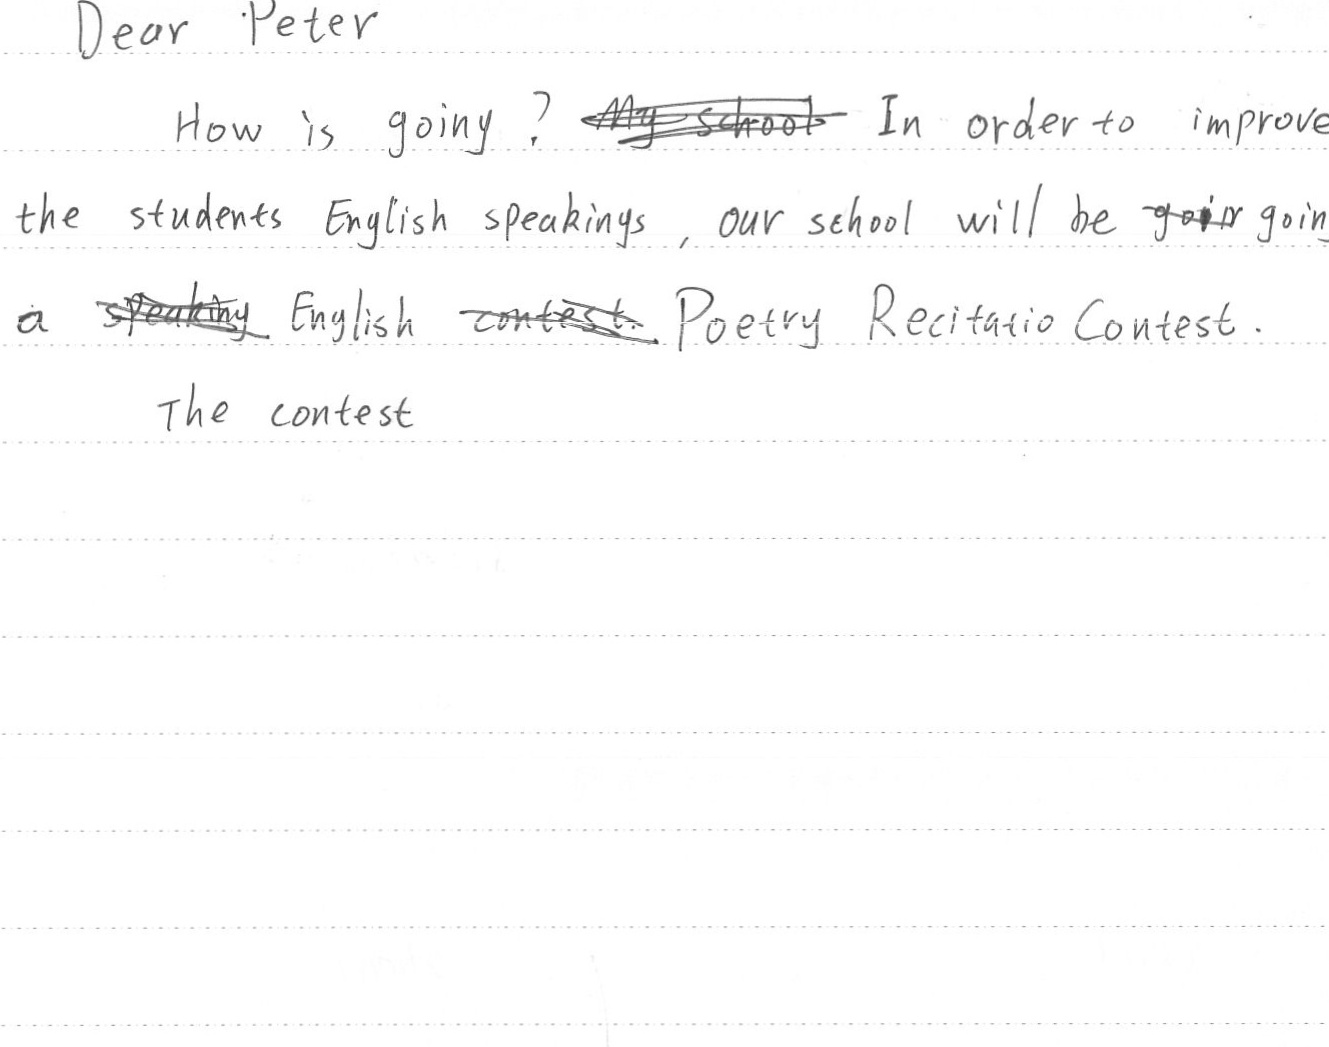 Dear Peter
How is going ? My school In order to improve
the students English speakings , our school will be goin goin
a speaking English contest. Poetry Recitatio Contest .
The contest